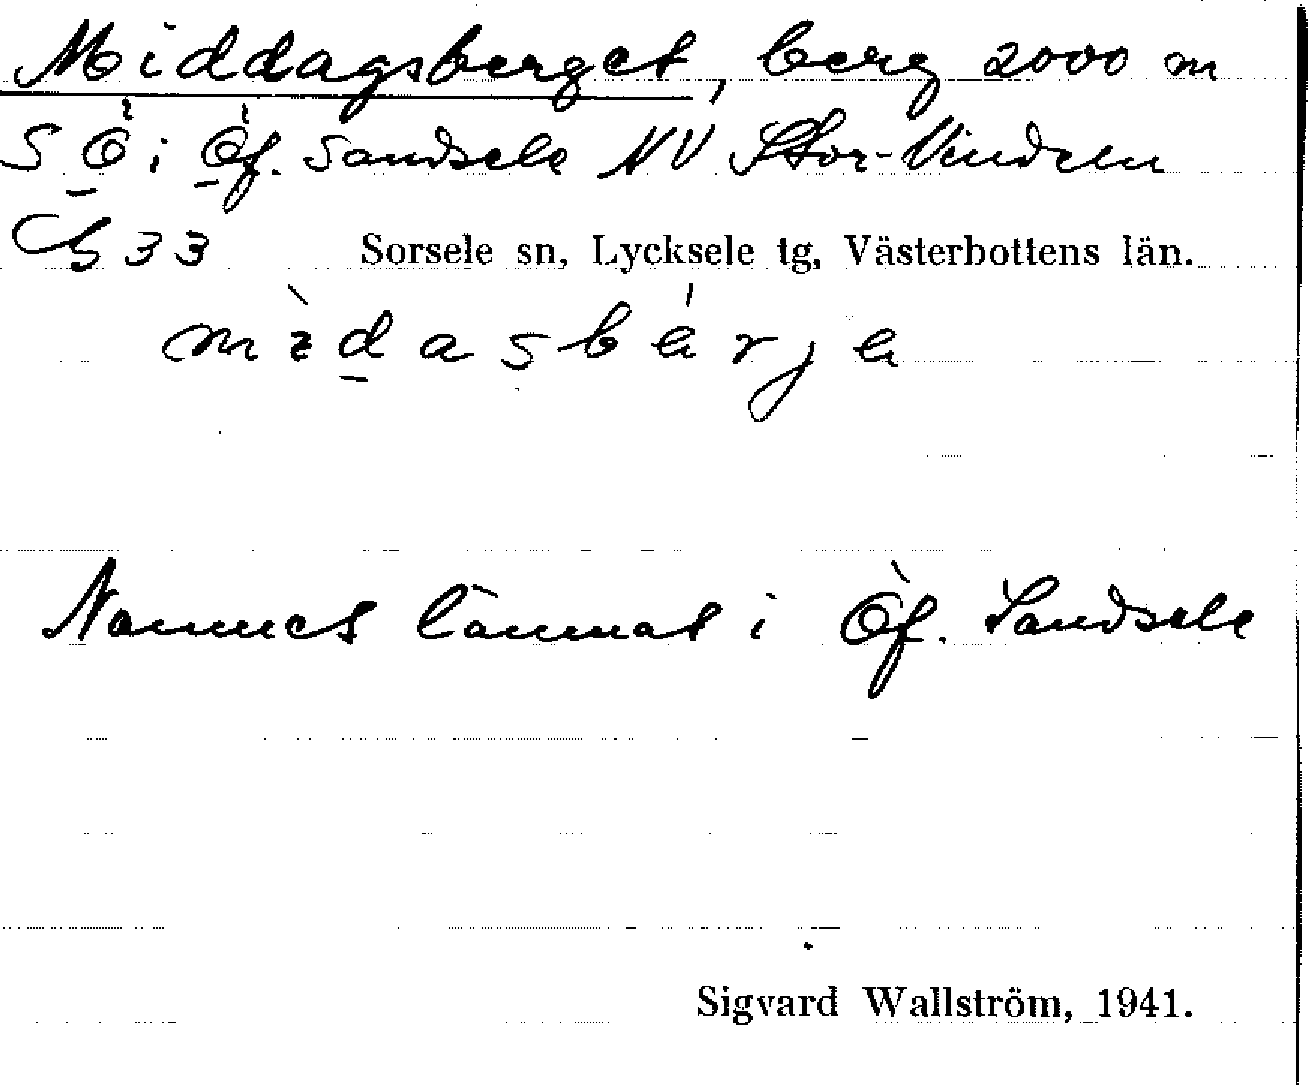 Middagsberget, berg 2000 m
SÖ i Öf. Sandsele NV Stor-Vindeln
33
Sorsele sn, Lycksele tg, Västerbottens län.
Namnet lämnat i Öf. Sandsele
Sigvard Wallström, 1941.